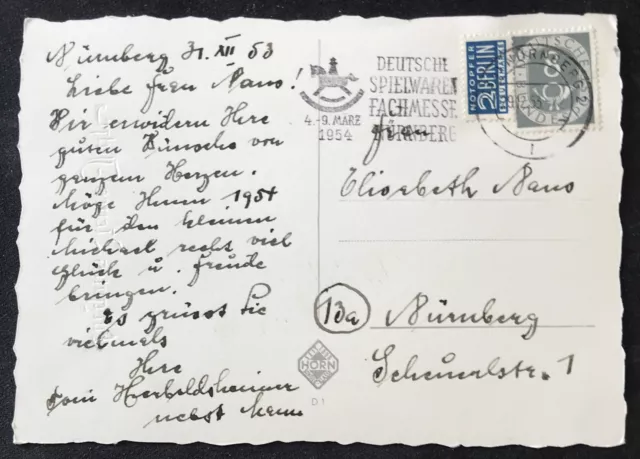 Nürnberg 31. XII 53
Liebe Frau Nans!
Wir erwidern Ihre
guten Wünsche von
ganzem Herzen.
Möge Ihnen 1954
für den kleinen
Michael recht viel
Glück u. Freude
bringen.
Es grüsst Sie
vielmals
Ihre
nebst Mann
DEUTSCHE
SPIELWAREN
FACHMESSE
NÜRNBERG
4.-9. MÄRZ
1954
NOTOPFER
2 BERLIN
STEUERMARKE
NÜRNBERG 2
Frau
Elisabeth Nans
13a
Nürnberg
Scheuerlstr. 1
HORN
D 1